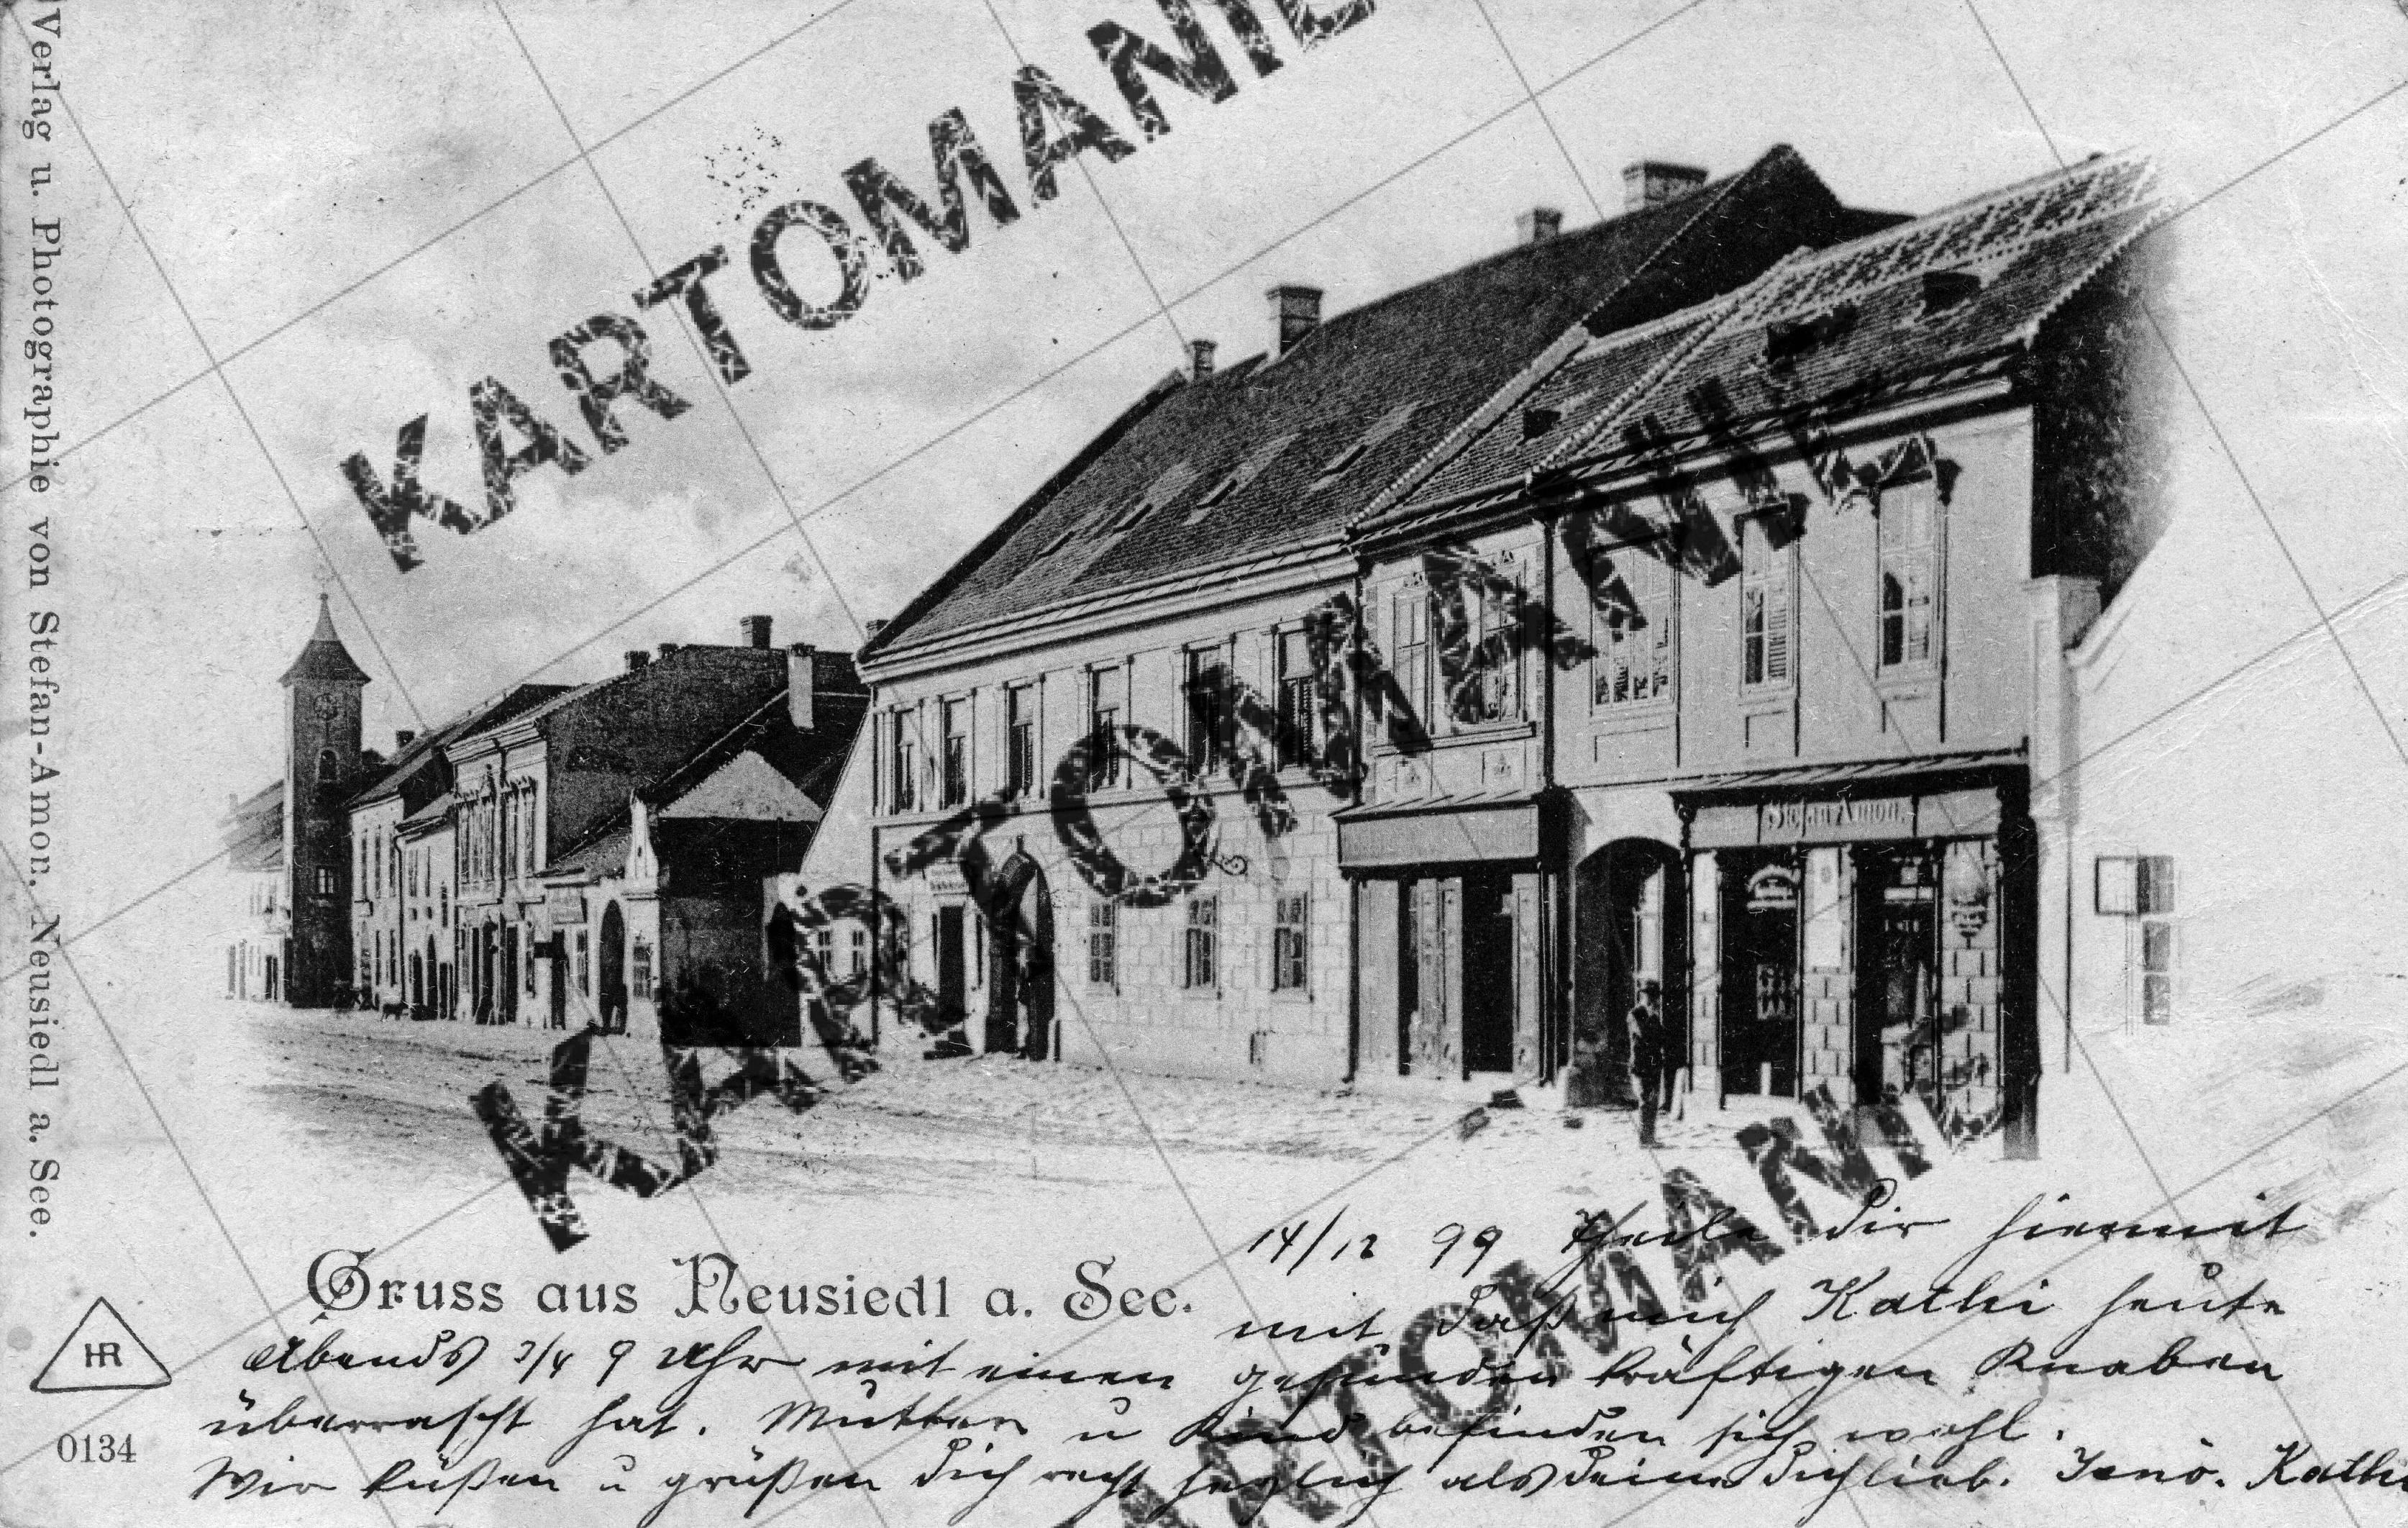 Verlag u. Photographie von Stefan-Amon. Neusiedl a. See.
KARTOMANIE
KARTOMANIE
KARTOMANIE
Stefan Amon.
Gruss aus Neusiedl a. See.
14/12 99 Theile dir hiermit
mit daß mich Kathi heute
Abends 3/4 9 Uhr mit einen gesunden kräftigen Knaben
überrascht hat. Mutter u Kind befinden sich wohl.
Wir küßen u grüßen dich recht herzlich als deine dich lieb. Jenö. Kathi
HR
0134